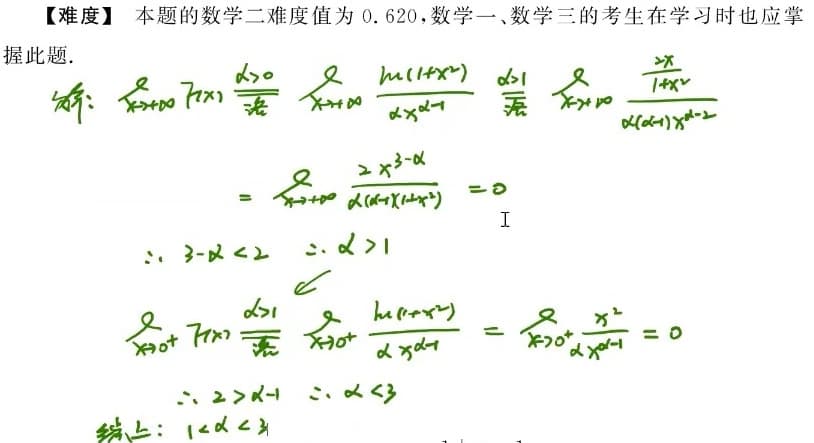 【难度】 本题的数学二难度值为 0.620,数学一、数学三的考生在学习时也应掌
握此题.
解: lim x→+∞ F(x) α>0 洛 = lim x→+∞ ln(1+x²) / αx^(α-1) α>1 洛 = lim x→+∞ (2x/(1+x²)) / α(α-1)x^(α-2)
= lim x→+∞ 2x^(3-α) / α(α-1)(1+x²) = 0
∴ 3-α<2 ∴ α>1
lim x→0⁺ F(x) α>1 洛 = lim x→0⁺ ln(1+x²) / αx^(α-1) = lim x→0⁺ x² / αx^(α-1) = 0
∴ 2>α-1 ∴ α<3
综上: 1<α<3